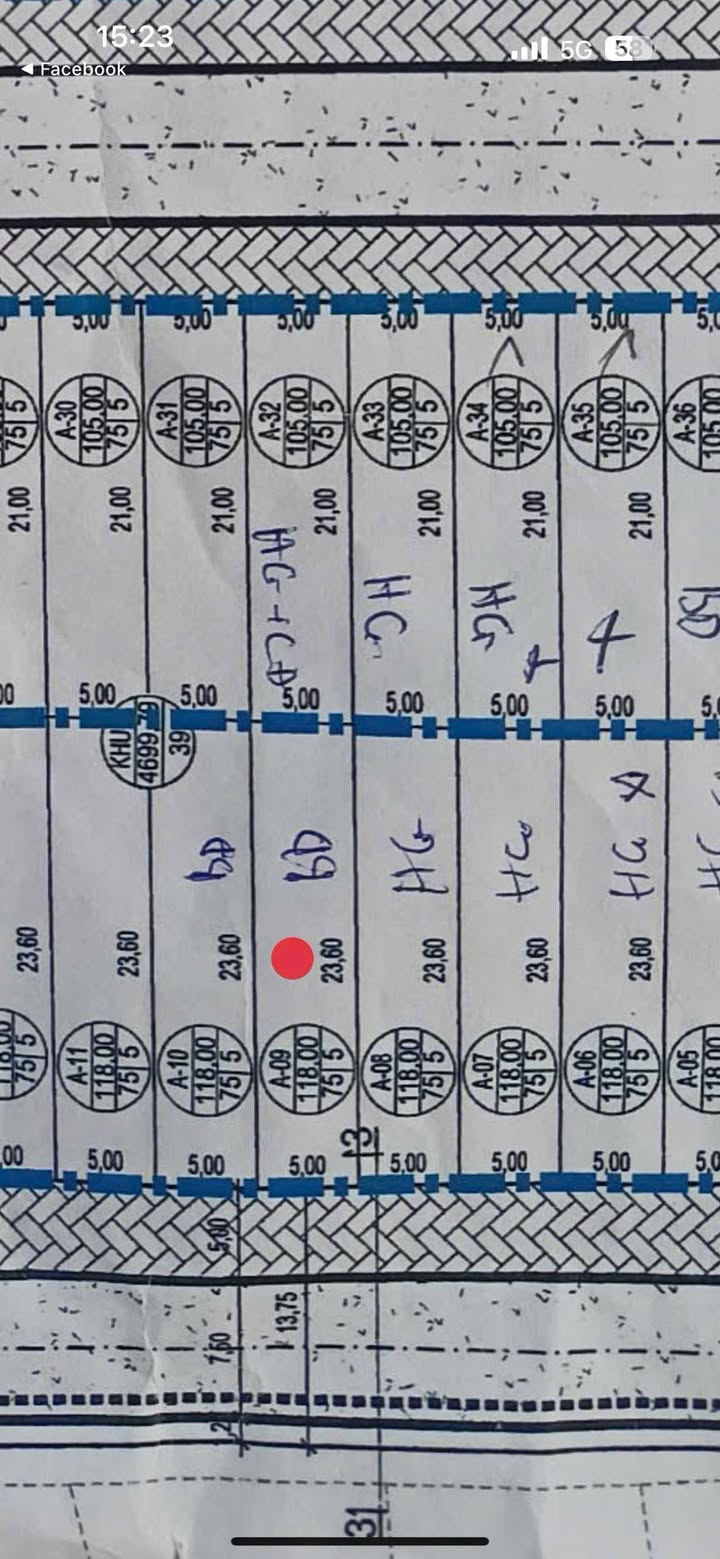 15:23
5G 58
◀ Facebook
5,00 5,00 5,00 5,00 5,00 5,00
A-30 A-31 A-32 A-33 A-34 A-35 A-36
105.00 105.00 105.00 105.00 105.00 105.00 105.00
75 5 75 5 75 5 75 5 75 5 75 5 75 5
21,00 21,00 21,00 21,00 21,00 21,00 21,00
HG HG
5,00 5,00 5,00 5,00 5,00 5,00
KHU
4699.79
39
BD BD HG HG HG X
23,60 23,60 23,60 23,60 23,60 23,60 23,60
A-11 A-10 A-09 A-08 A-07 A-06 A-05
118.00 118.00 118.00 118.00 118.00 118.00 118.00
75 5 75 5 75 5 75 5 75 5 75 5
13
5,00 5,00 5,00 5,00 5,00 5,00
5,00
7,50 13,75
31